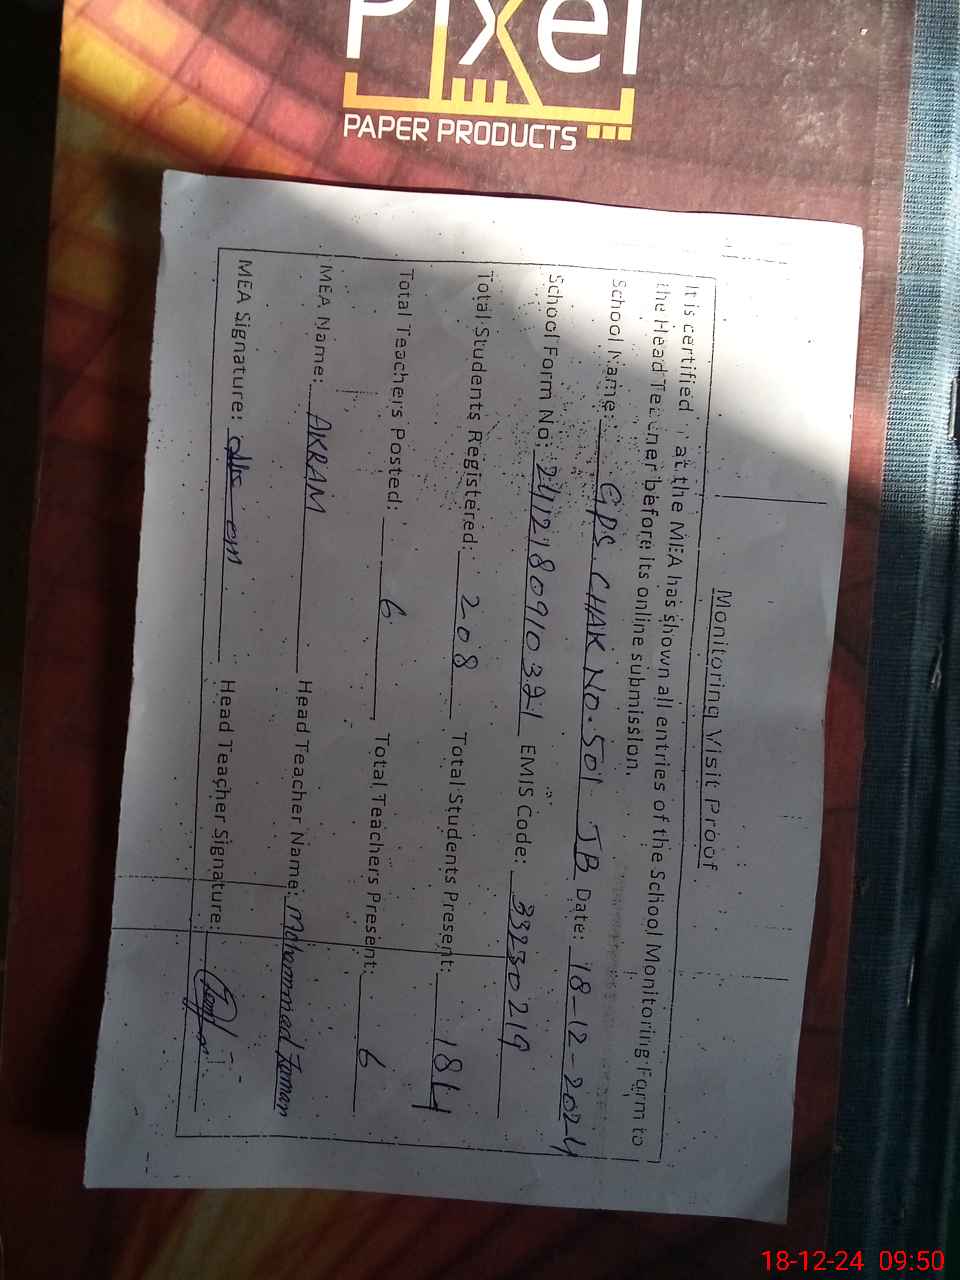 Pixel
PAPER PRODUCTS
Monitoring Visit Proof
It is certified at the MEA has shown all entries of the School Monitoring Form to
the Head Teacher before its online submission.
School Name: GPS. CHAK NO. 501 JB Date: 18-12-2024
School Form No: 2412180910321 EMIS Code: 33230219
Total Students Registered: 208 Total Students Present: 184
Total Teachers Posted: 6 Total Teachers Present: 6
MEA Name: AKRAM Head Teacher Name: Mohammad Zaman
MEA Signature: Head Teacher Signature:
18-12-24 09:50